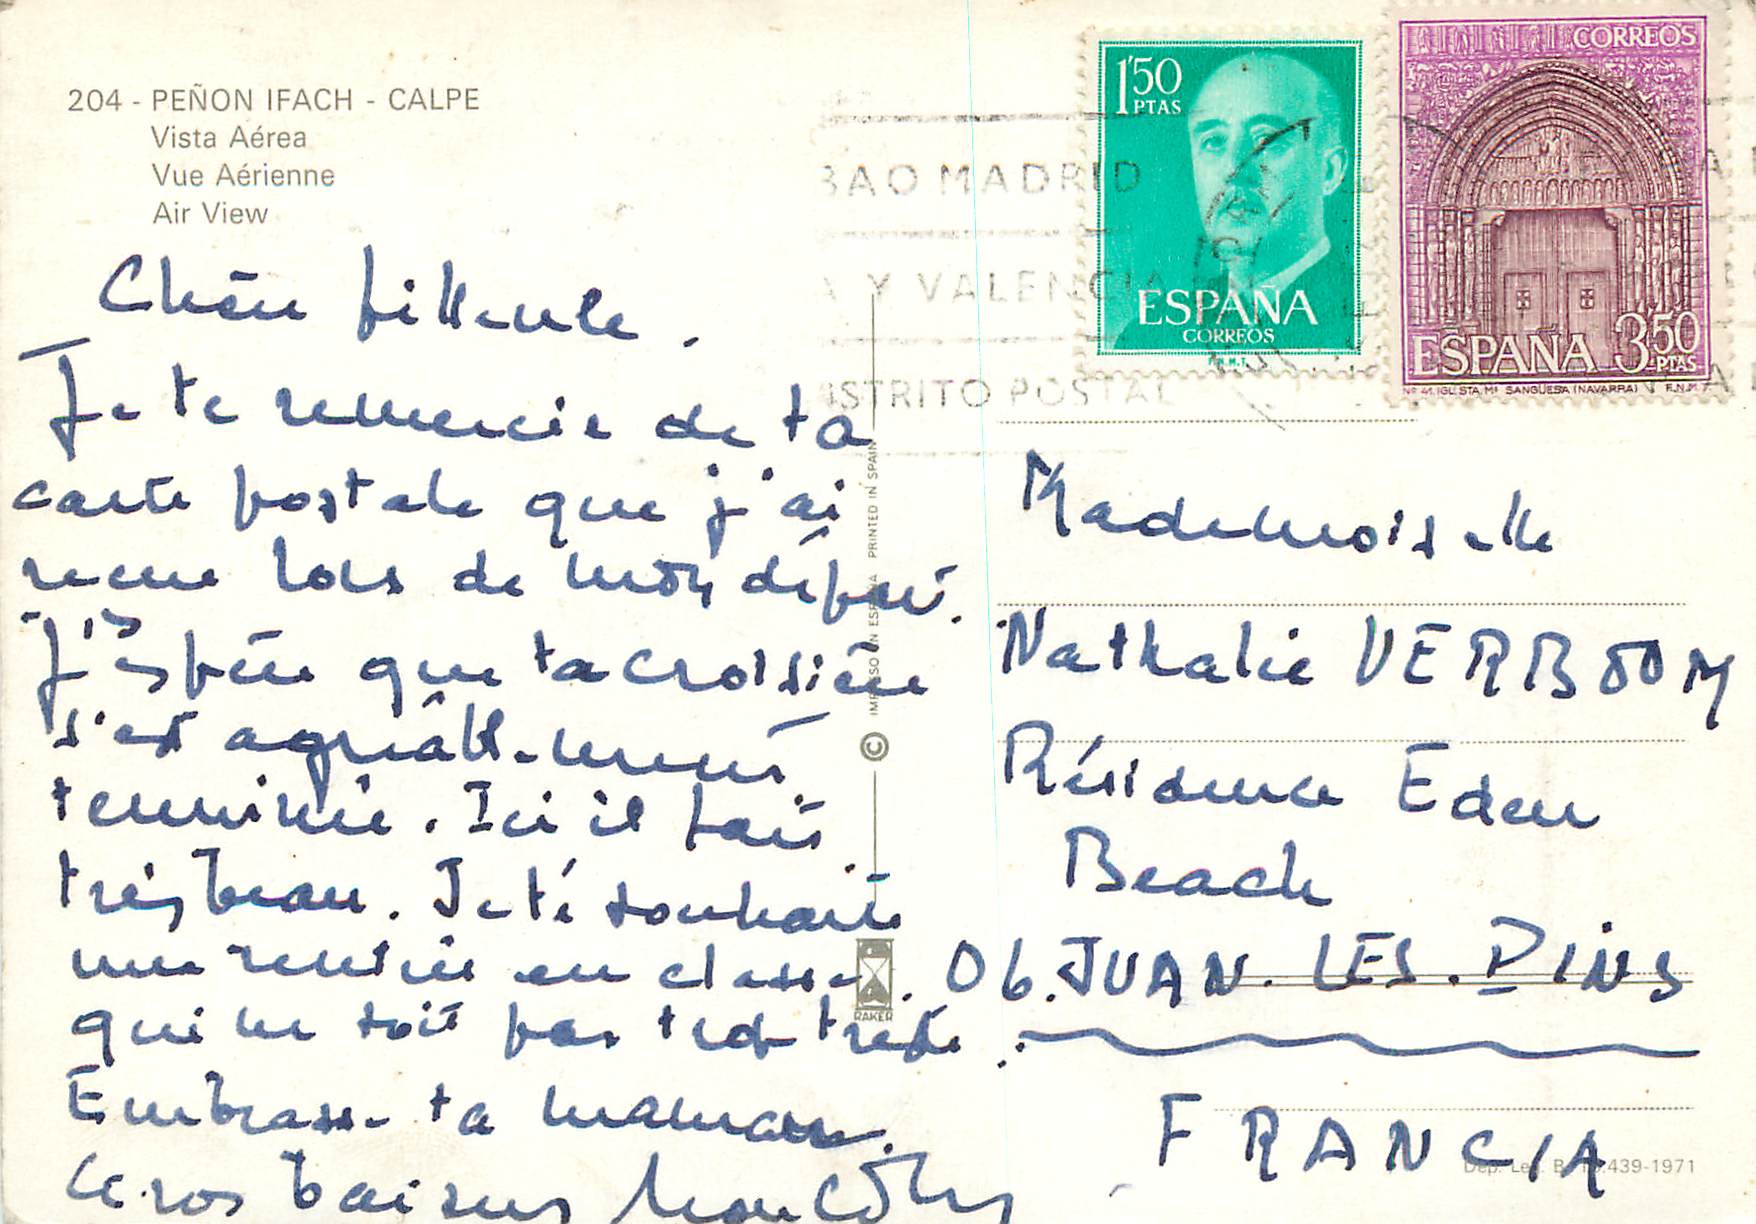 204 - PEÑON IFACH - CALPE
Vista Aérea
Vue Aérienne
Air View
Chère filleule.
Je te remercie de ta
carte postale que j'ai
reçue lors de mon départ.
J'espère que ta croisière
s'est agréablement
terminée. Ici il fait
très beau. Je te souhaite
une rentrée en classe
qui ne soit pas trop triste.
Embrasse ta maman.
Gros baisers
BAO MADRID
A Y VALENCIA
ISTRITO POSTAL
1'50
PTAS
ESPAÑA
CORREOS
F.N.M.T.
CORREOS
ESPAÑA 3'50
PTAS
Nº 41. IGLESTA. Mª SANGÜESA (NAVARRA) F.N.M.T.
IMPRESO EN ESPAÑA PRINTED IN SPAIN
©
RAKER
Mademoiselle
Nathalie VERBOOM
Résidence Eden
Beach
06. JUAN. LES. PINS
FRANCIA
Dep. Leg. B. .439-1971